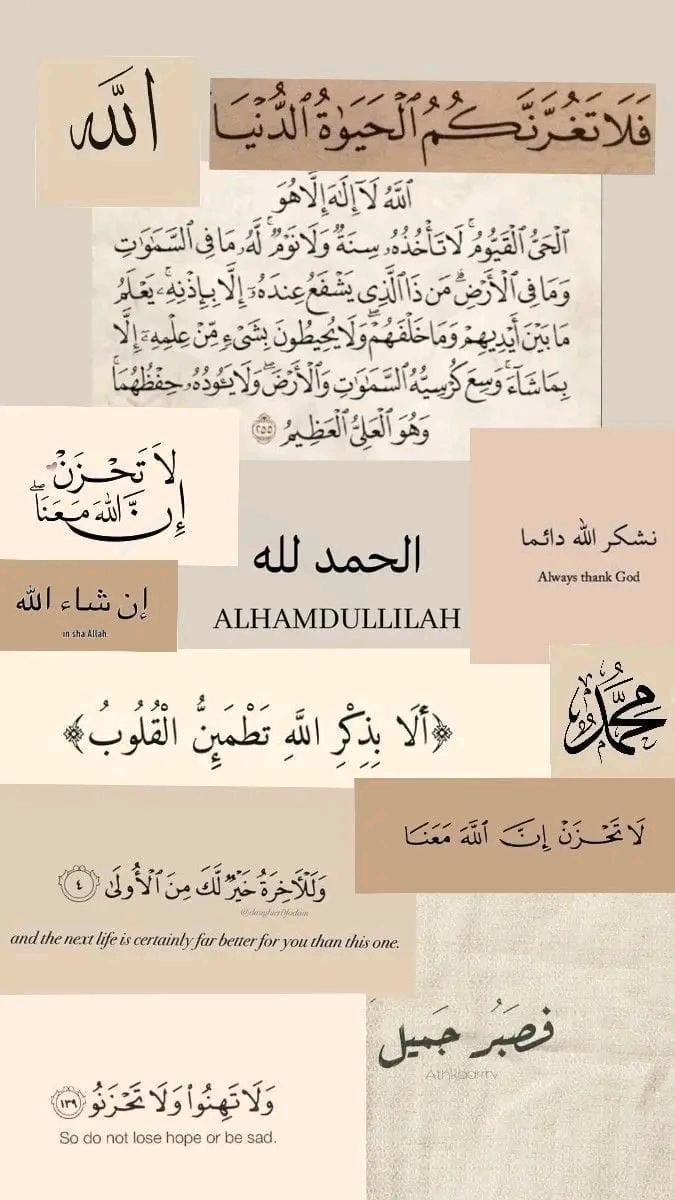 الله
فَلَا تَغُرَّنَّكُمُ ٱلْحَيَوٰةُ ٱلدُّنْيَا
ٱللَّهُ لَآ إِلَٰهَ إِلَّا هُوَ
ٱلْحَىُّ ٱلْقَيُّومُ ۚ لَا تَأْخُذُهُۥ سِنَةٌ وَلَا نَوْمٌ ۚ لَّهُۥ مَا فِى ٱلسَّمَٰوَٰتِ
وَمَا فِى ٱلْأَرْضِ ۗ مَن ذَا ٱلَّذِى يَشْفَعُ عِندَهُۥٓ إِلَّا بِإِذْنِهِۦ ۚ يَعْلَمُ
مَا بَيْنَ أَيْدِيهِمْ وَمَا خَلْفَهُمْ ۖ وَلَا يُحِيطُونَ بِشَىْءٍ مِّنْ عِلْمِهِۦٓ إِلَّا
بِمَا شَآءَ ۚ وَسِعَ كُرْسِيُّهُ ٱلسَّمَٰوَٰتِ وَٱلْأَرْضَ ۖ وَلَا يَـُٔودُهُۥ حِفْظُهُمَا ۚ
وَهُوَ ٱلْعَلِىُّ ٱلْعَظِيمُ ٢٥٥
لَا تَحْزَنْ
إِنَّ اللَّهَ مَعَنَا ۖ
نشكر الله دائما
Always thank God
الحمد لله
ALHAMDULLILAH
إن شاء الله
in sha Allah.
محمد
﴿أَلَا بِذِكْرِ اللَّهِ تَطْمَئِنُّ الْقُلُوبُ﴾
لَا تَحْزَنْ إِنَّ ٱللَّهَ مَعَنَا
وَلَلْـَٔاخِرَةُ خَيْرٌ لَّكَ مِنَ ٱلْأُولَىٰ ٤
and the next life is certainly far better for you than this one.
فَصَبْرٌ جَمِيل
وَلَا تَهِنُوا۟ وَلَا تَحْزَنُو ١٣٩
So do not lose hope or be sad.